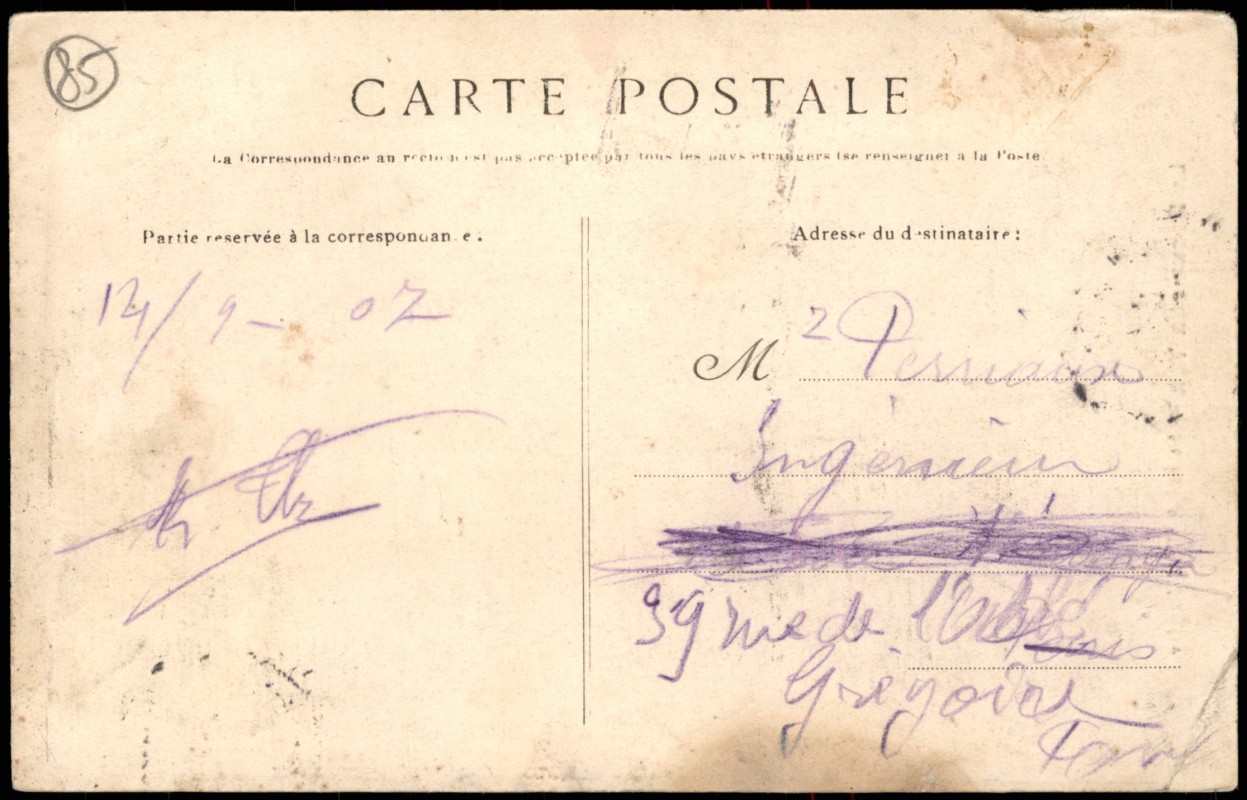 85
CARTE POSTALE
La Correspondance au recto n'est pas acceptée par tous les pays étrangers (se renseigner à la Poste
Partie reservée à la correspondance:
Adresse du destinataire:
14/9-07
M
Ingénieur
39 rue de l'Abbé
Grégoire